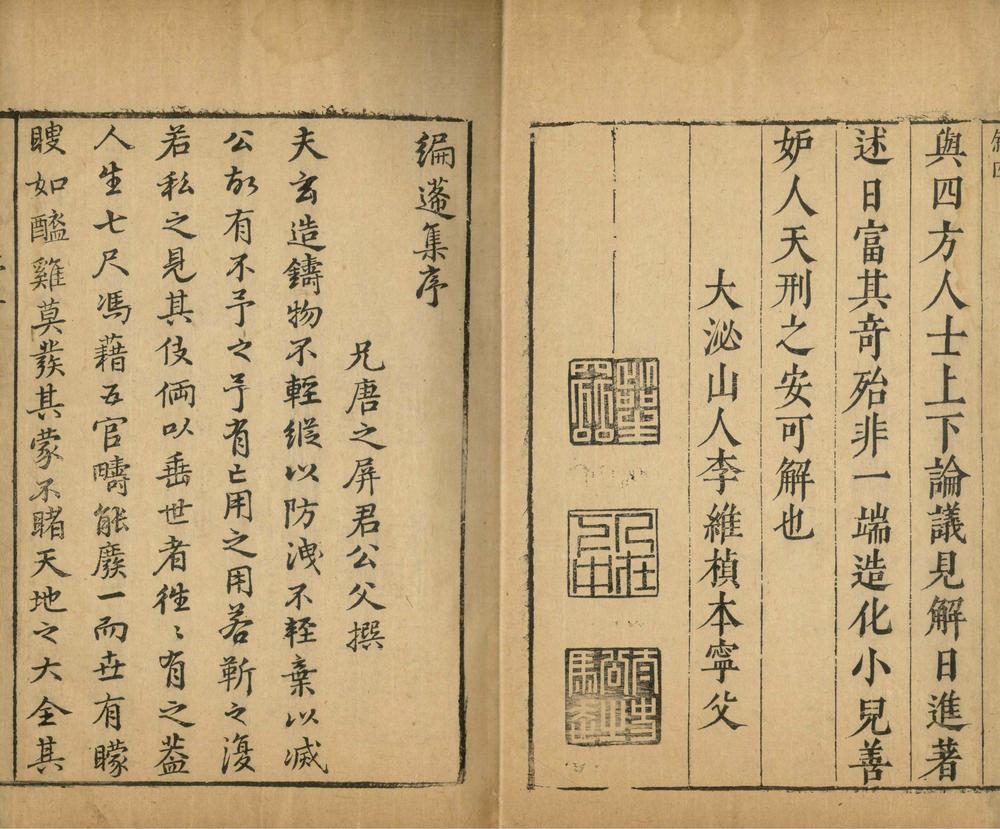 與四方人士上下論議見解日進著
述日富其奇殆非一端造化小兒善
妒人天刑之安可解也
大泌山人李維楨本寧父
編蓬集序
兄唐之屏君公父撰
夫玄造鑄物不輕縱以防洩不輕棄以滅
公故有不予之予有亡用之用若靳之復
若私之見其伎倆以垂世者徃〻有之葢
人生七尺馮藉五官疇能廢一而世有矇
瞍如醯雞莫發其蒙不睹天地之大全其